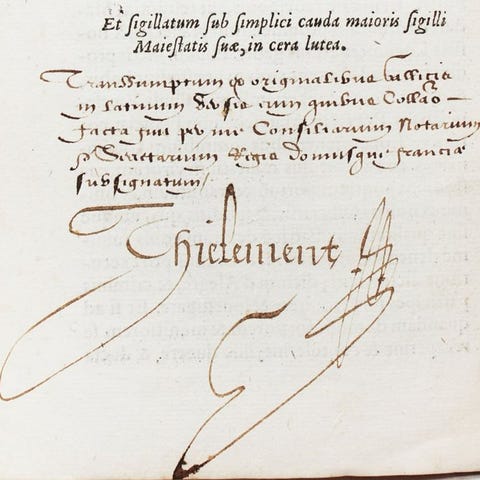 Et sigillatum sub simplici cauda maioris sigilli
Maiestatis suæ, in cera lutea.
Transsumptum ex originalibus Gallicis
in latinum cum quibus Colla͠o
facta fuit per me Consiliarium Notarium
Secretarium Regis domusque franciæ
subsignatum
Thielement